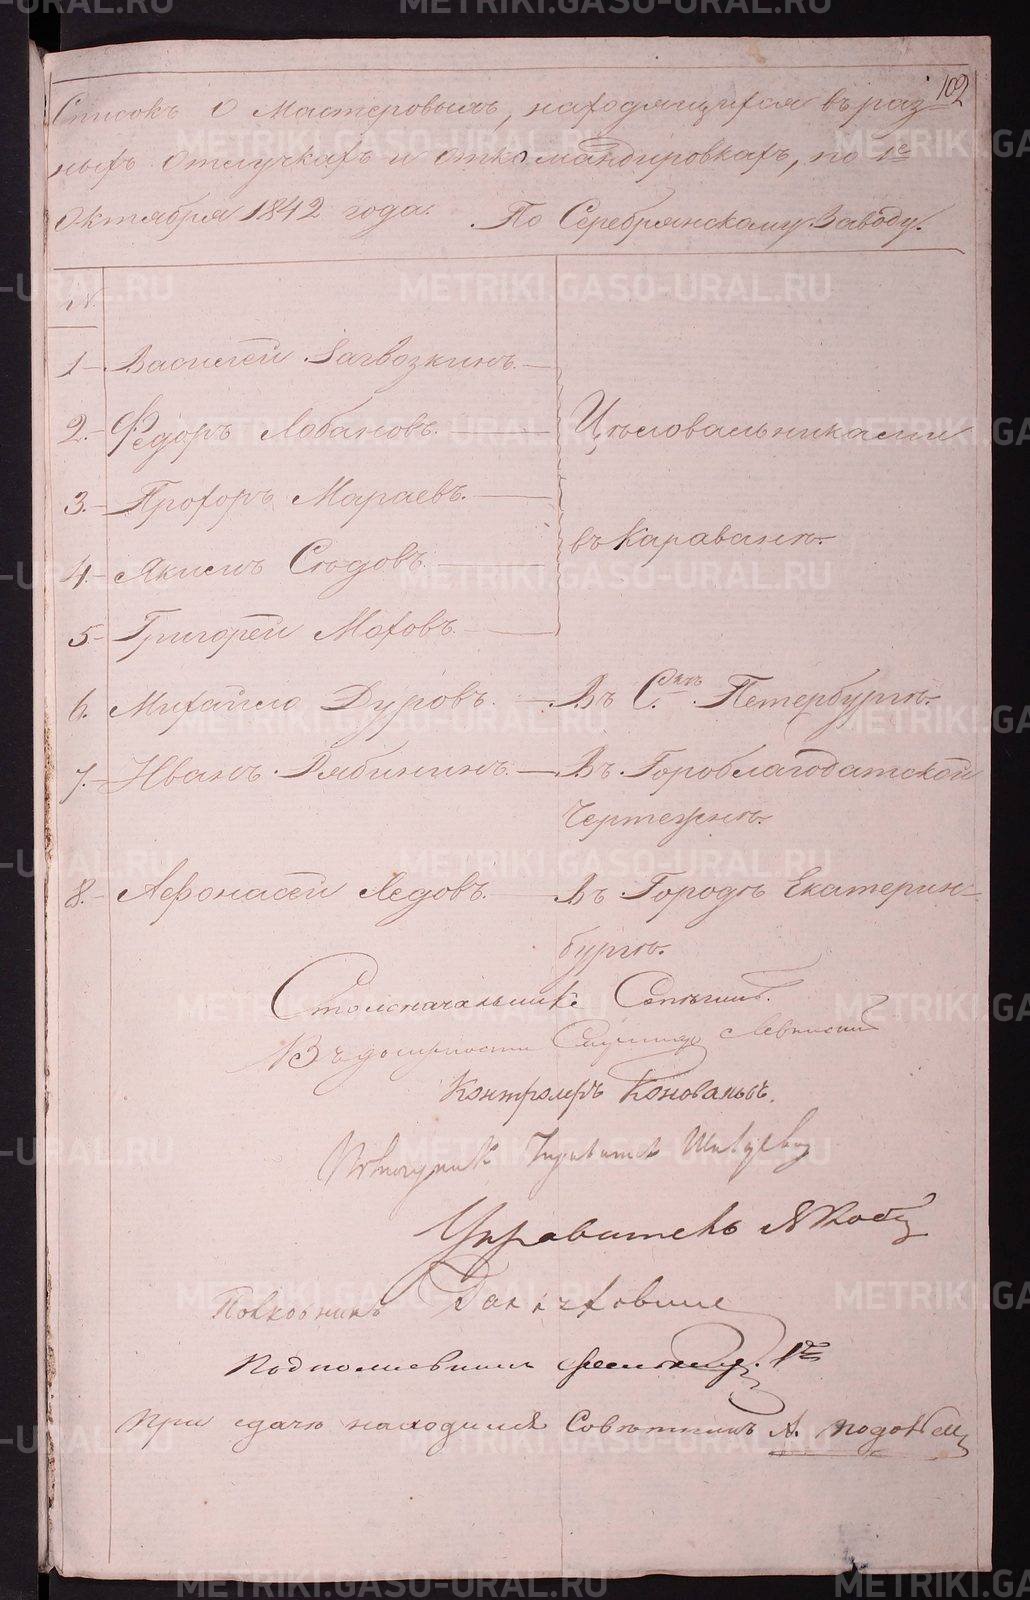 102
Списокъ о Мастеровыхъ, находящихся въ раз-
ныхъ отлучкахъ и откомандировкахъ, по 1е
Октября 1842 года. По Серебрянскому Заводу.
N.
1 - Василей Загвозкинъ. -
2. - Федоръ Лобановъ. - Цѣловальниками
3. - Прохоръ Мараевъ. -
въ Караванѣ.
4. - Якимъ Сѣдовъ. -
5 - Григорей Моховъ. -
6. Михайло Дуровъ. - Въ С. Петербургѣ.
7. - Иванъ Рябининъ. - Въ Гороблагодатской
Чертежнѣ.
8. - Афонасей Ледовъ. - Въ Городѣ Екатерин-
бургѣ.
Столоначальникъ
Въ должности
Контролеръ Коноваловъ.
Управитель
Полковникъ
Подполковникъ 1й
При сдачѣ находился Совѣтникъ А.
METRIKI.GASO-URAL.RU